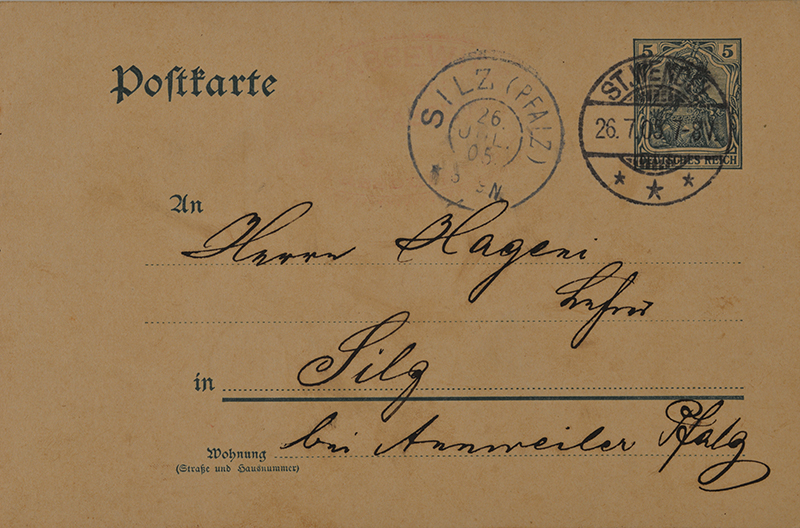 5 5
Postkarte
DEUTSCHES REICH
SILZ (PFALZ)
26.
JUL.
05.
N
ST. WENDEL
26. 7. 05. 7-8V.
An
Herrn Hageni
Lehrer
in Silz
bei Annweiler Pfalz
Wohnung
(Straße und Hausnummer)